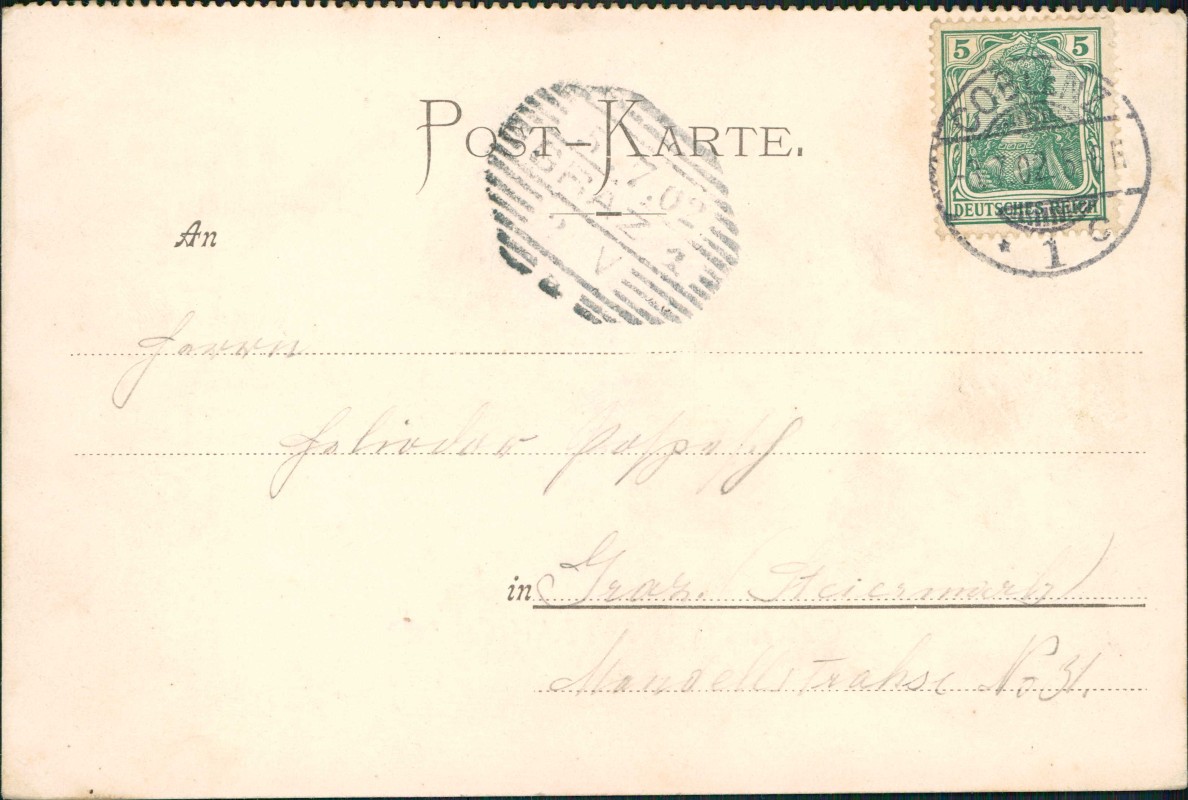 POST-KARTE.
5 5
DEUTSCHES REICH
COBLENZ
7.02.
* 1 C
7.02
GRAZ 1
V
An
Herrn
Heliodor
in Graz. (Steiermark)
Mandellstrahse No 31.